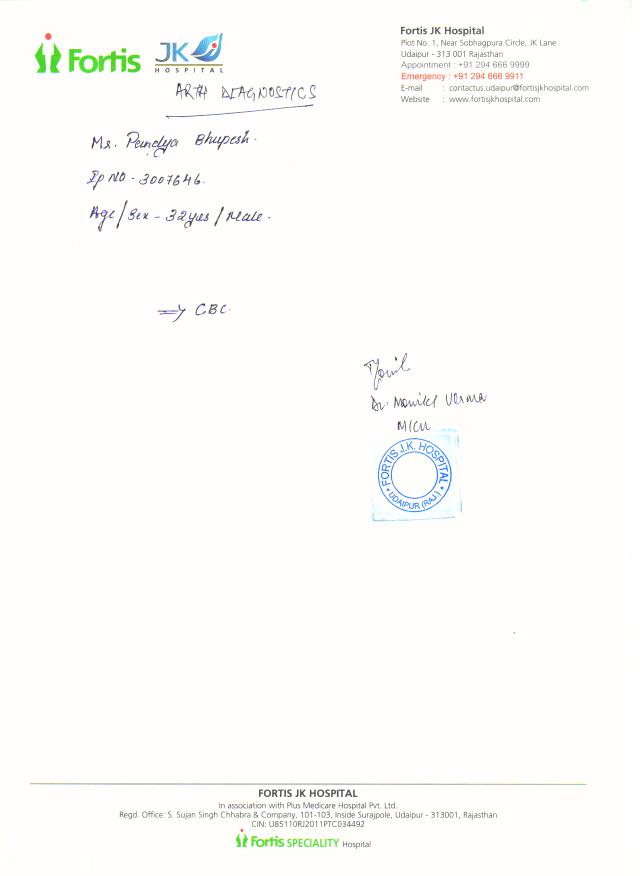 Fortis
JK
HOSPITAL
Fortis JK Hospital
Plot No. 1, Near Sobhagpura Circle, JK Lane
Udaipur - 313 001 Rajasthan
Appointment : +91 294 666 9999
Emergency : +91 294 666 9911
E-mail : contactus.udaipur@fortisjkhospital.com
Website : www.fortisjkhospital.com
ARTH DIAGNOSTICS
Mr. Pandya Bhupesh.
Ip NO - 3007646.
Age/Sex - 32yrs/Male.
⇒ CBC.
Dr. Verma
MICU
FORTIS J.K. HOSPITAL
UDAIPUR (RAJ.)
FORTIS JK HOSPITAL
In association with Plus Medicare Hospital Pvt. Ltd.
Regd. Office: S. Sujan Singh Chhabra & Company, 101-103, Inside Surajpole, Udaipur - 313001, Rajasthan
CIN: U85110RJ2011PTC034492
Fortis SPECIALITY Hospital